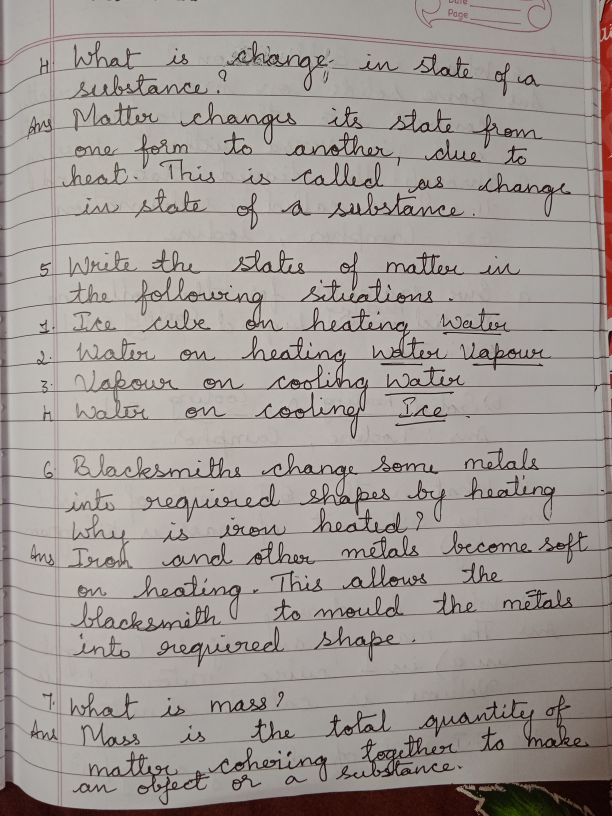 Date
Page
4 What is change in state of a
substance?
Ans Matter changes its state from
one form to another, due to
heat. This is called as change
in state of a substance.
5 Write the states of matter in
the following situations.
1. Ice cube on heating Water
2. Water on heating Water Vapour
3. Vapour on cooling Water
4 Water on cooling Ice.
6 Blacksmiths change some metals
into required shapes by heating
Why is iron heated?
Ans Iron and other metals become soft
on heating. This allows the
blacksmith to mould the metals
into required shape.
7. What is mass?
Ans Mass is the total quantity of
matter cohering together to make
an object or a substance.